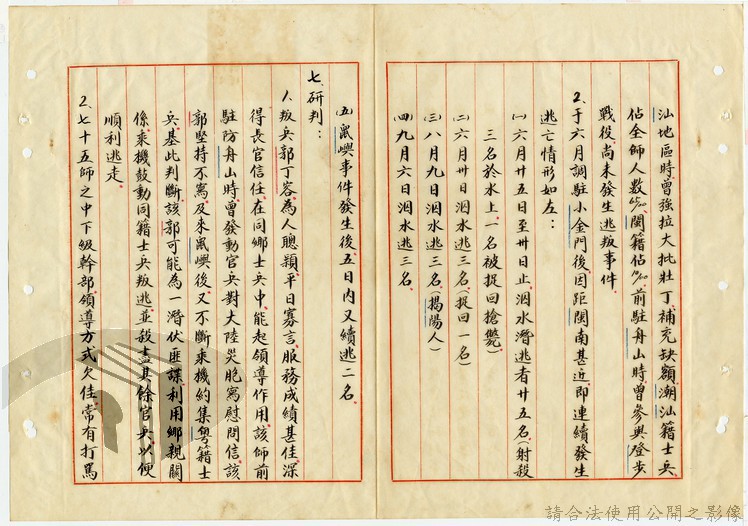 汕地區時曾強拉大批壯丁補充缺額潮汕籍士兵
佔全師人數 閩籍佔 前駐舟山時曾參與登步
戰役尚未發生逃叛事件
2、于六月調駐小金門後因距閩南甚近即連續發生
逃亡情形如左：
㈠六月廿五日至卅日止泅水潛逃者廿五名(射殺
三名於水上一名被捉回搶斃)
㈡六月卅日泅水逃三名(捉回一名)
㈢八月九日泅水逃三名(揭陽人)
㈣九月六日泅水逃三名。
㈤鼠嶼事件發生後五日內又續逃二名。
七、研判：
1、叛兵郭丁容為人聰穎平日寡言服務成績甚佳深
得長官信任在同鄉士兵中能起領導作用該師前
駐防舟山時曾發動官兵對大陸災胞寫慰問信該
郭堅持不寫及來鼠嶼後又不斷乘機約集粵籍士
兵基此判斷該郭可能為一潛伏匪諜利用鄉親關
係乘機鼓動同籍士兵叛逃並殺盡其餘官兵以便
順利逃走
2、七十五師之中下級幹部領導方式欠佳常有打罵
請合法使用公開之影像